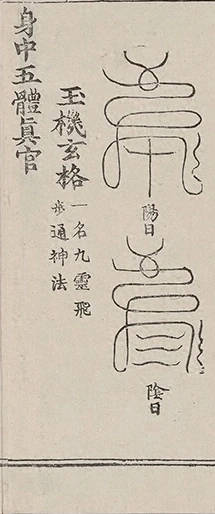 陽日
陰日
玉機玄格
一名九靈飛
步通神法
身中五體眞官